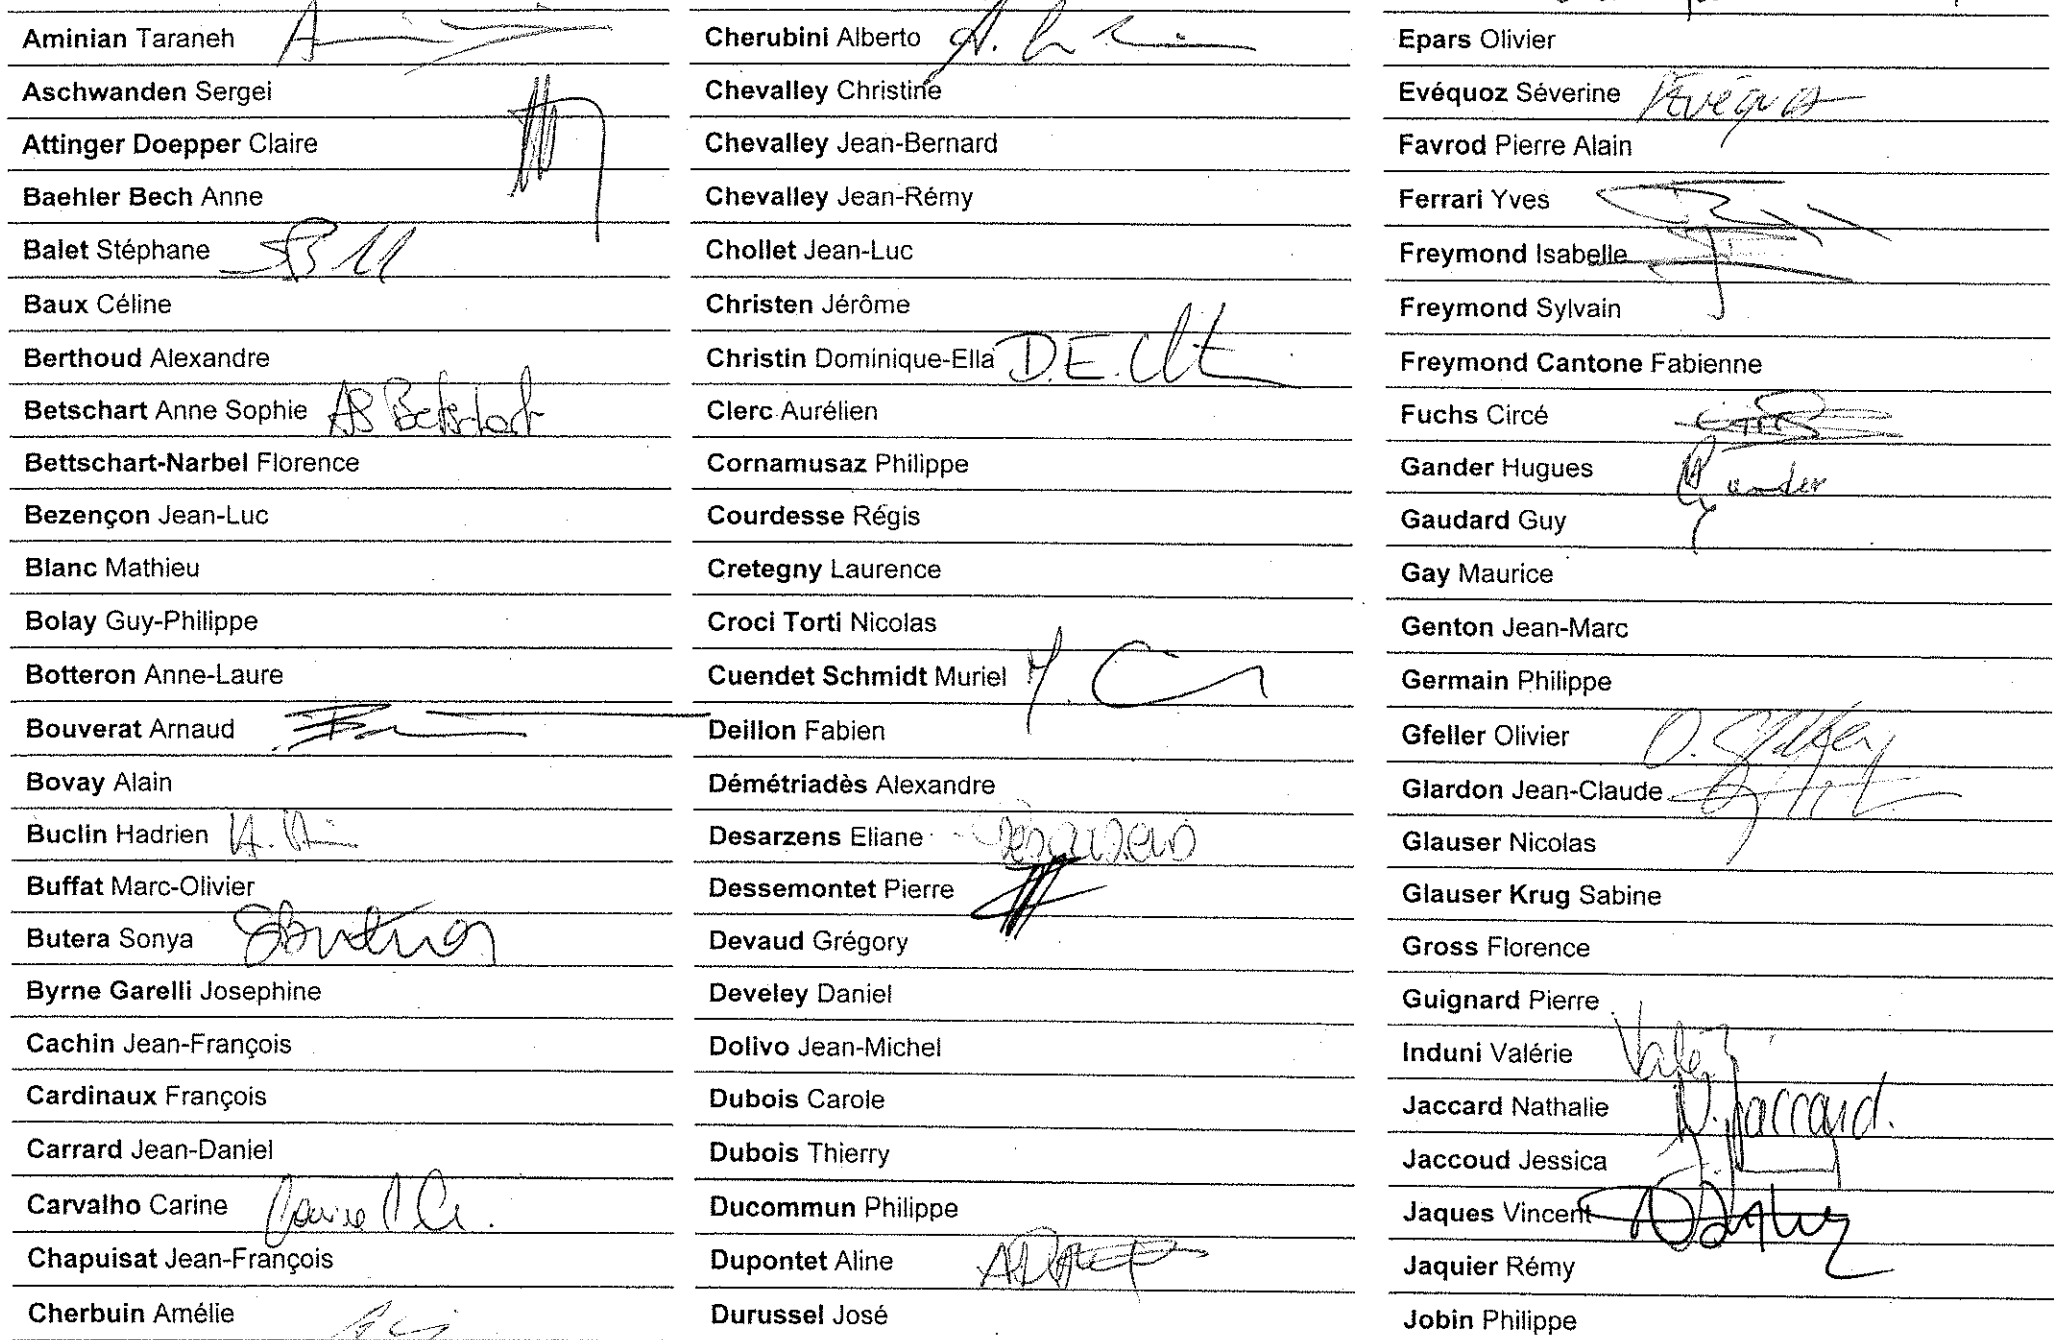 Aminian Taraneh
Aschwanden Sergei
Attinger Doepper Claire
Baehler Bech Anne
Balet Stéphane
Baux Céline
Berthoud Alexandre
Betschart Anne Sophie AS Betschart
Bettschart-Narbel Florence
Bezençon Jean-Luc
Blanc Mathieu
Bolay Guy-Philippe
Botteron Anne-Laure
Bouverat Arnaud
Bovay Alain
Buclin Hadrien
Buffat Marc-Olivier
Butera Sonya
Byrne Garelli Josephine
Cachin Jean-François
Cardinaux François
Carrard Jean-Daniel
Carvalho Carine
Chapuisat Jean-François
Cherbuin Amélie
Cherubini Alberto
Chevalley Christine
Chevalley Jean-Bernard
Chevalley Jean-Rémy
Chollet Jean-Luc
Christen Jérôme
Christin Dominique-Ella D.E.
Clerc Aurélien
Cornamusaz Philippe
Courdesse Régis
Cretegny Laurence
Croci Torti Nicolas
Cuendet Schmidt Muriel
Deillon Fabien
Démétriadès Alexandre
Desarzens Eliane Desarzens
Dessemontet Pierre
Devaud Grégory
Develey Daniel
Dolivo Jean-Michel
Dubois Carole
Dubois Thierry
Ducommun Philippe
Dupontet Aline
Durussel José
Epars Olivier
Evéquoz Séverine Evéquoz
Favrod Pierre Alain
Ferrari Yves
Freymond Isabelle
Freymond Sylvain
Freymond Cantone Fabienne
Fuchs Circé
Gander Hugues Gander
Gaudard Guy
Gay Maurice
Genton Jean-Marc
Germain Philippe
Gfeller Olivier O. Gfeller
Glardon Jean-Claude
Glauser Nicolas
Glauser Krug Sabine
Gross Florence
Guignard Pierre
Induni Valérie
Jaccard Nathalie N. Jaccard.
Jaccoud Jessica
Jaques Vincent
Jaquier Rémy
Jobin Philippe